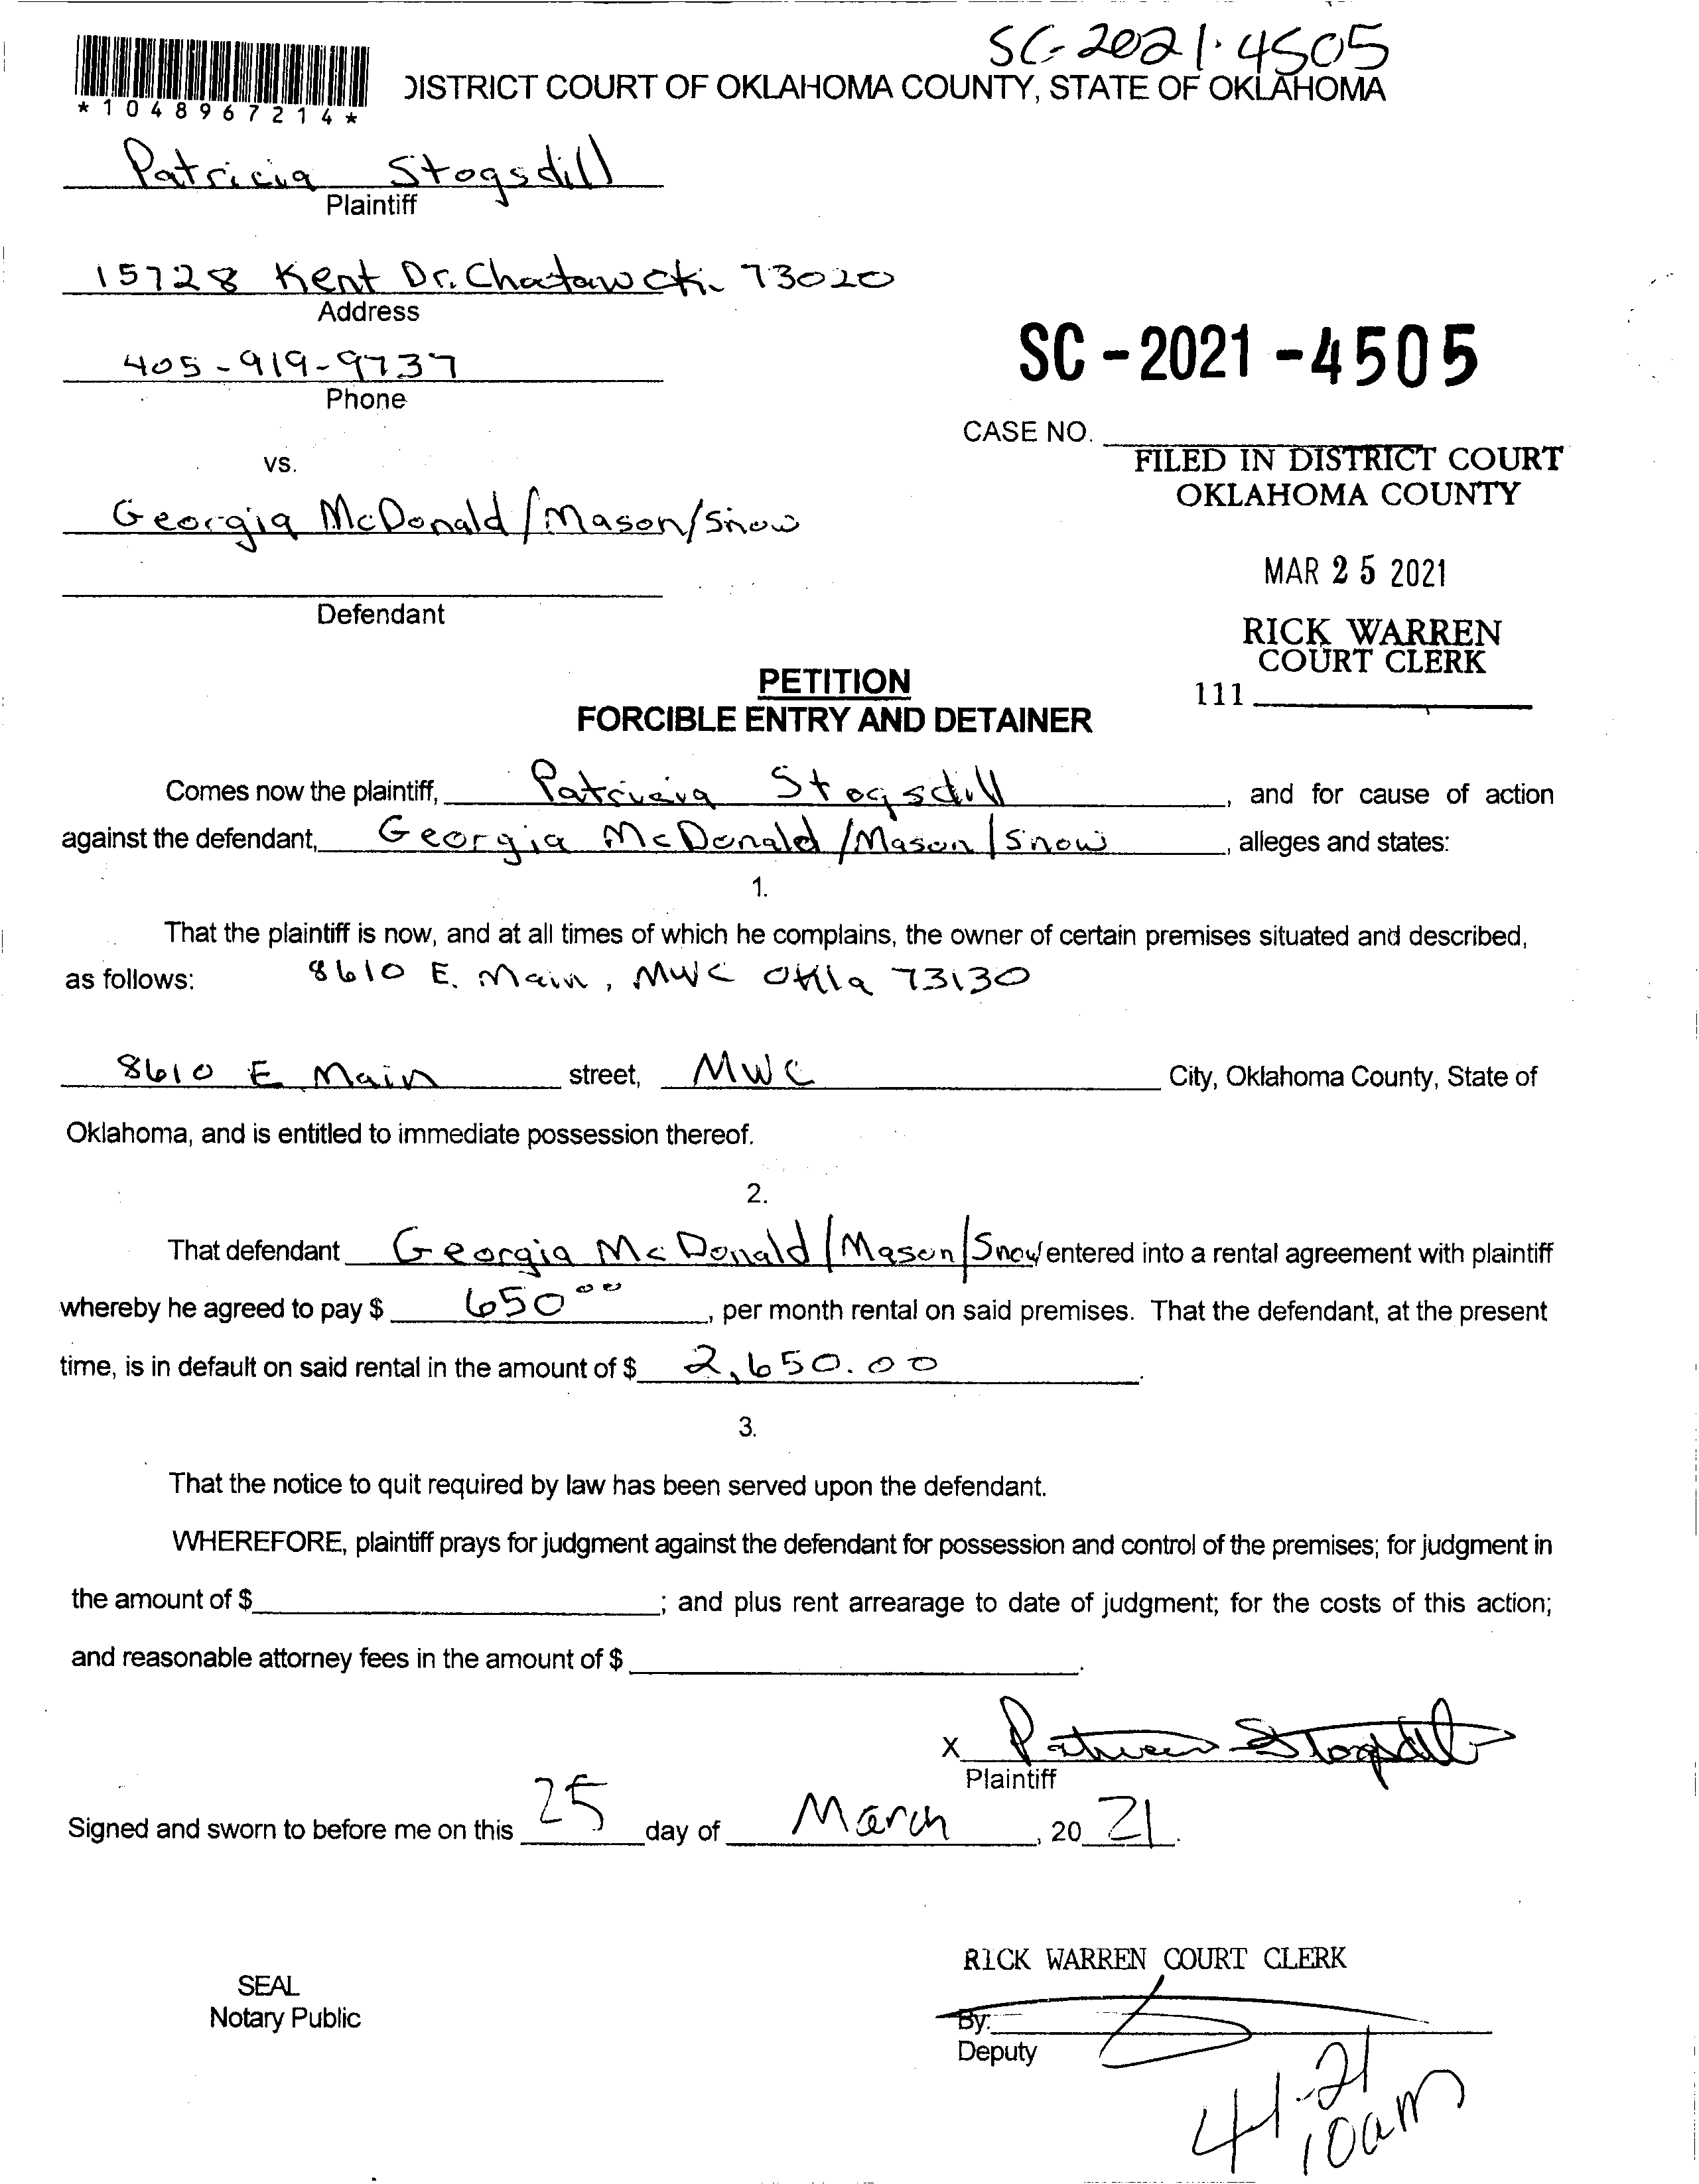 SC-2021-4505
DISTRICT COURT OF OKLAHOMA COUNTY, STATE OF OKLAHOMA
*1048967214*
Patricia Stogsdill
Plaintiff
15728 Kent Dr. Choctaw Ok. 73020
Address
405-919-9737
Phone
SC-2021-4505
CASE NO.
FILED IN DISTRICT COURT
OKLAHOMA COUNTY
vs.
Georgia McDonald/Mason/Snow
MAR 25 2021
Defendant
RICK WARREN
COURT CLERK
111
PETITION
FORCIBLE ENTRY AND DETAINER
Comes now the plaintiff, Patricia Stogsdill, and for cause of action
against the defendant, Georgia McDonald/Mason/Snow, alleges and states:
1.
That the plaintiff is now, and at all times of which he complains, the owner of certain premises situated and described,
as follows: 8610 E. Main, MWC Okla 73130
8610 E Main street, MWC City, Oklahoma County, State of
Oklahoma, and is entitled to immediate possession thereof.
2.
That defendant Georgia McDonald/Mason/Snow entered into a rental agreement with plaintiff
whereby he agreed to pay $ 650 00, per month rental on said premises. That the defendant, at the present
time, is in default on said rental in the amount of $ 2,650.00.
3.
That the notice to quit required by law has been served upon the defendant.
WHEREFORE, plaintiff prays for judgment against the defendant for possession and control of the premises; for judgment in
the amount of $ ; and plus rent arrearage to date of judgment; for the costs of this action;
and reasonable attorney fees in the amount of $ .
X Patricia Stogsdill
Plaintiff
Signed and sworn to before me on this 25 day of March, 20 21.
RICK WARREN COURT CLERK
SEAL
Notary Public
By:
Deputy
10am